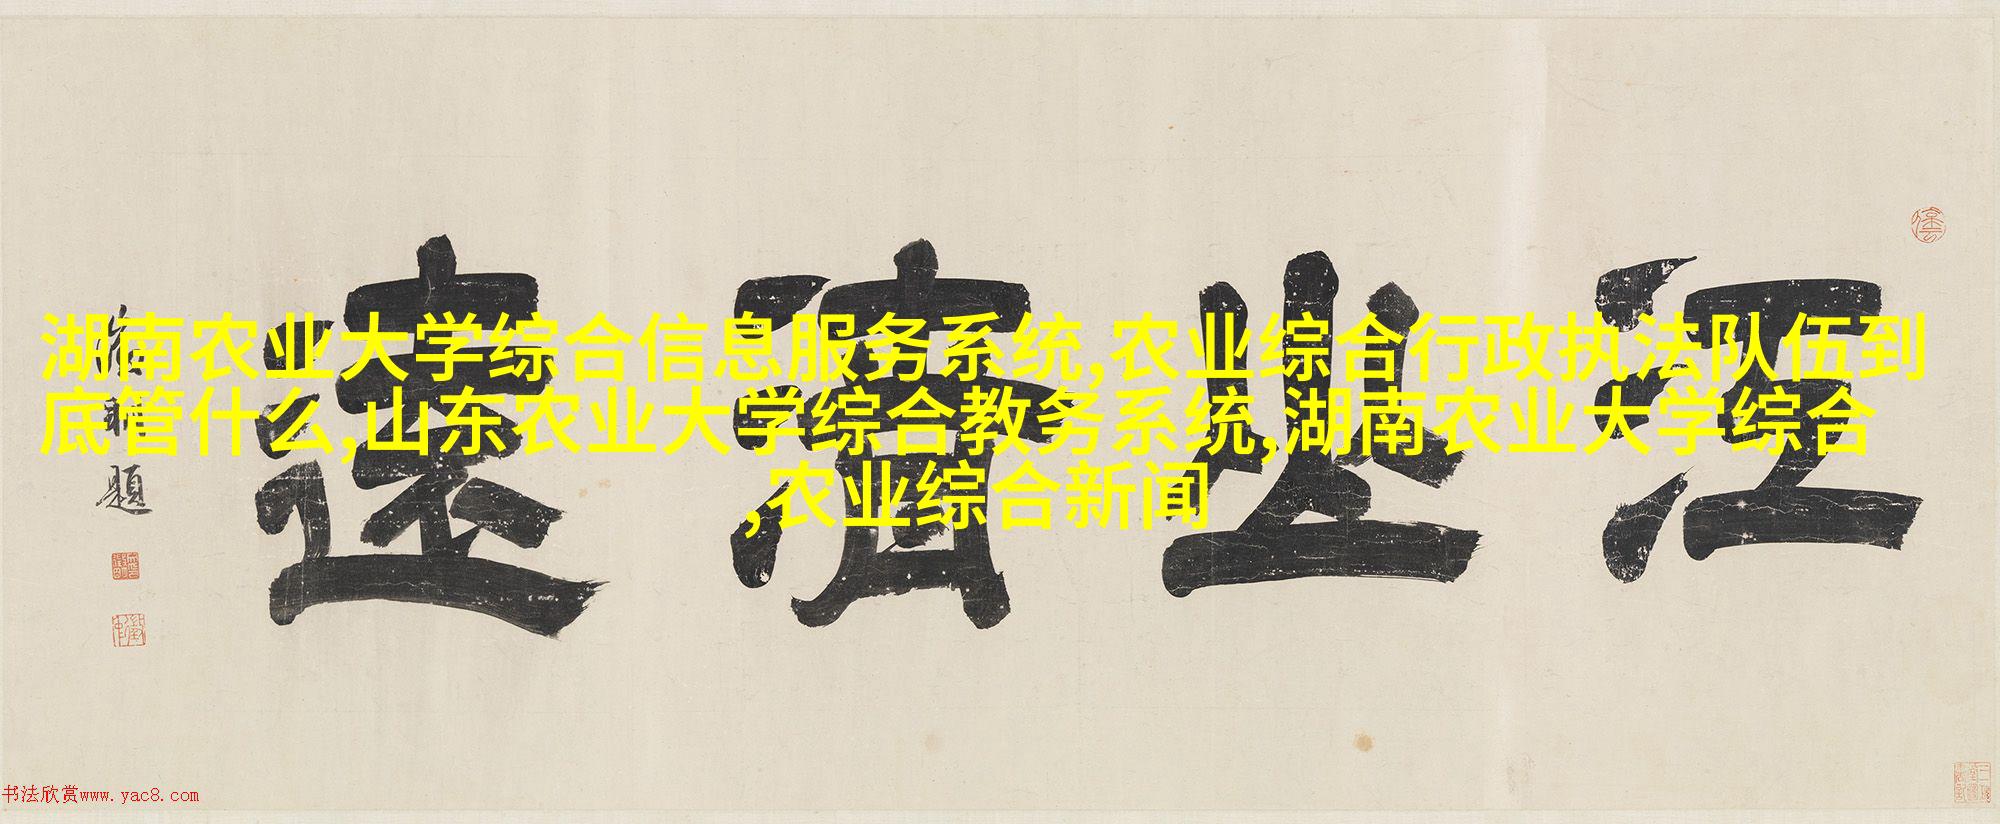 湖南农业大学综合信息服务系统,农业综合行政执法队伍到
底管什么,山东农业大学综合教务系统,湖南农业大学综合
,农业综合新闻
江
遠
題
书法欣赏www.yac8.com